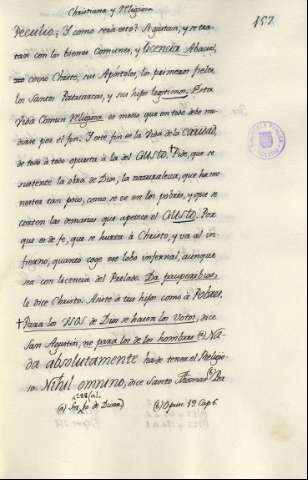 Christiana y Mística
157.
Peculio; Y como será esto? Agustan, y se tra-
tan con los bienes Comunes, y licencia Abacial
como Christo, sus Apóstoles, los primeros fieles
los Santos Patriarcas, y sus hijos legítimos. Esta
vida Común es medio, que en todo debe mi-
rarse por el fin. Y este fin es la Vida de la Caridad,
de todo à todo opuesta à la del GUSTO. Pide, que se
sustente la obra de Dios, la naturaleza, que ha me-
nester tan poco, como se ve en los pobres, y que se
corten las demasias que apetece el GUSTO. Por
que es de fe, que se hurta à Christo, y va al in-
fierno, quanto coge ese lobo infernal, aunque
sea con licencia del Prelado. Da pauperibus,
le dice Christo. Amite à tus hijos como à Pobres.
+ Para los usos de Dios se hacen los Votos, dice
San Agustin, no para los de los hombres (a) Na-
da absolutamente ha de tener el Religio-
so. Nihil omnino, dice Santo Thomas (b) Pa-
(b) Opus. 19 Cap. 6